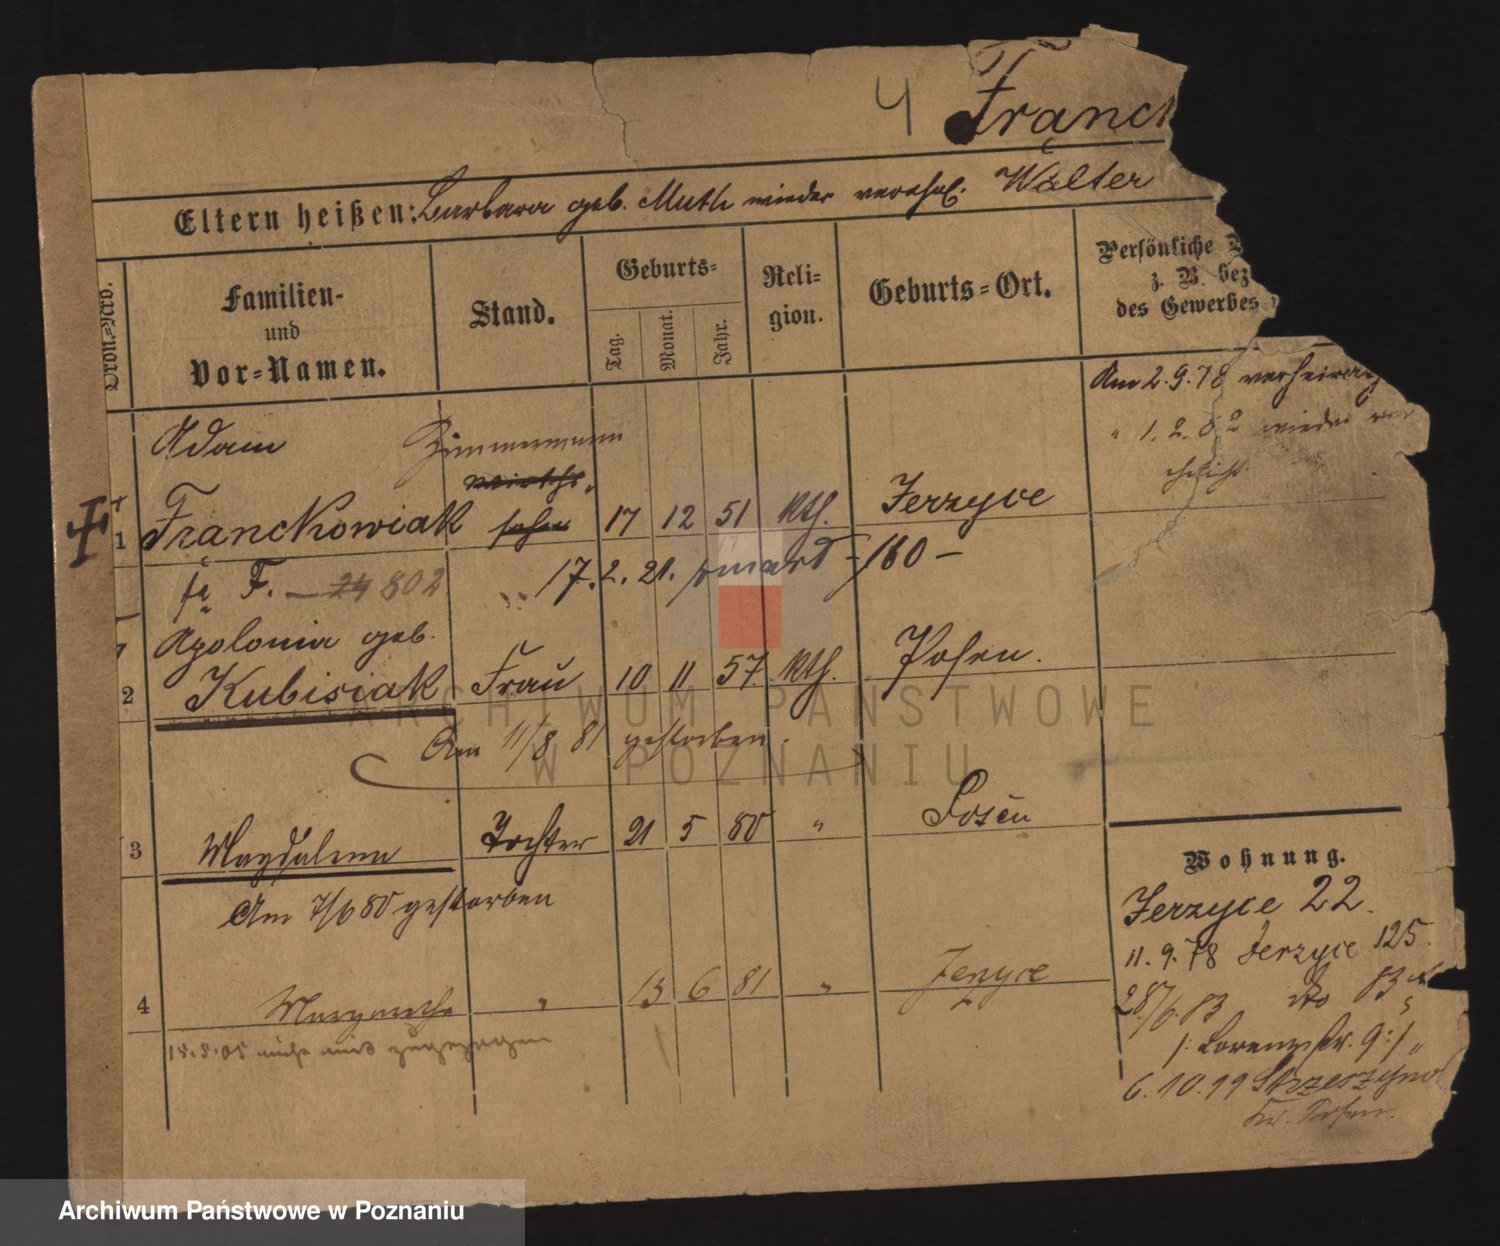 4 Franck
Eltern heißen: Barbara geb. Muth wieder verehel. Walter
Ordn.-Nro.
Familien-
und
Vor-Namen.
Stand.
Geburts-
Tag.
Monat.
Jahr.
Reli-
gion.
Geburts-Ort.
Persönliche
z. B. bez
des Gewerbes
Am 2.9.78 verheirat
" 1. 2. 82 wieder ver
ehelicht.
Adam Zimmermann
wirths
1 Franckowiak sohn 17 12 51 Kth. Jerzyce
F. — 24 802 17. 2. 21. 160 —
Apolonia geb.
2 Kubisiak Frau 10 11 57 Kth. Posen.
Am 11/8 81 gestorben.
3 Magdalena Tochter 21 5 80 " Posen
Am 7/6 80 gestorben
4 Margarethe " 13 6 81 " Jerzyce
18.8.05 nicht mit zugezogen
Wohnung.
Jerzyce 22.
11. 9. 78 Jerzyce 125.
28/6. 83 dto 83
/: Lorenzstr. 9 :/
6. 10. 19 Strzeszyno
Kr. Posen.
ARCHIWUM PAŃSTWOWE
W POZNANIU
Archiwum Państwowe w Poznaniu